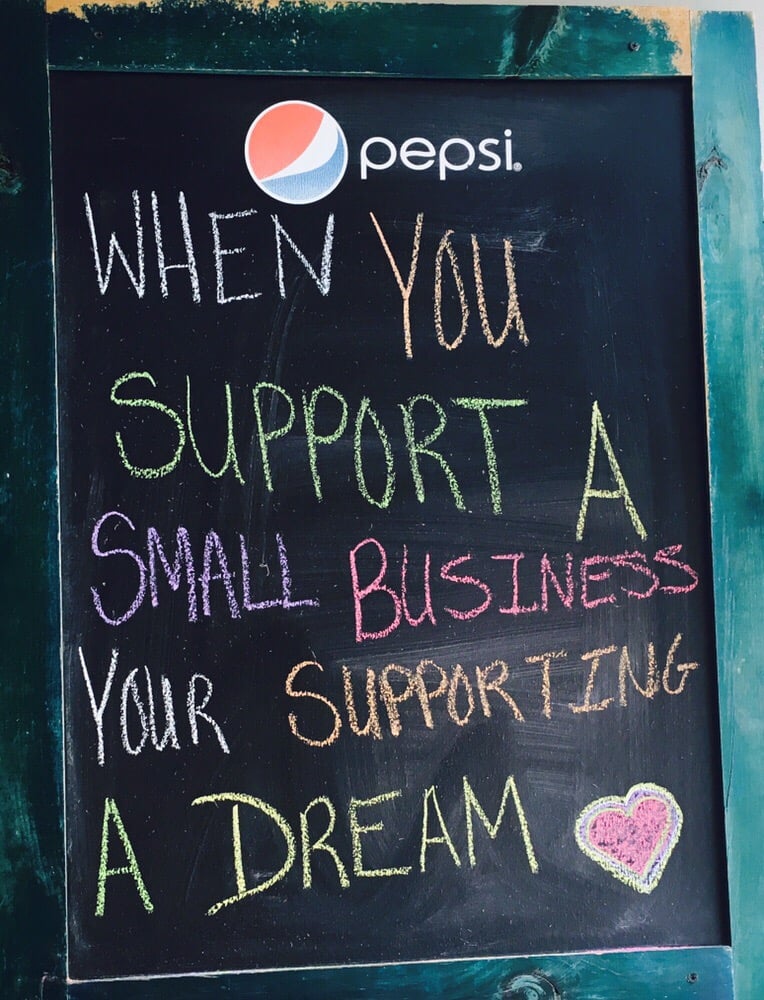 pepsi
WHEN YOU
SUPPORT A
SMALL BUSINESS
YOUR SUPPORTING
A DREAM